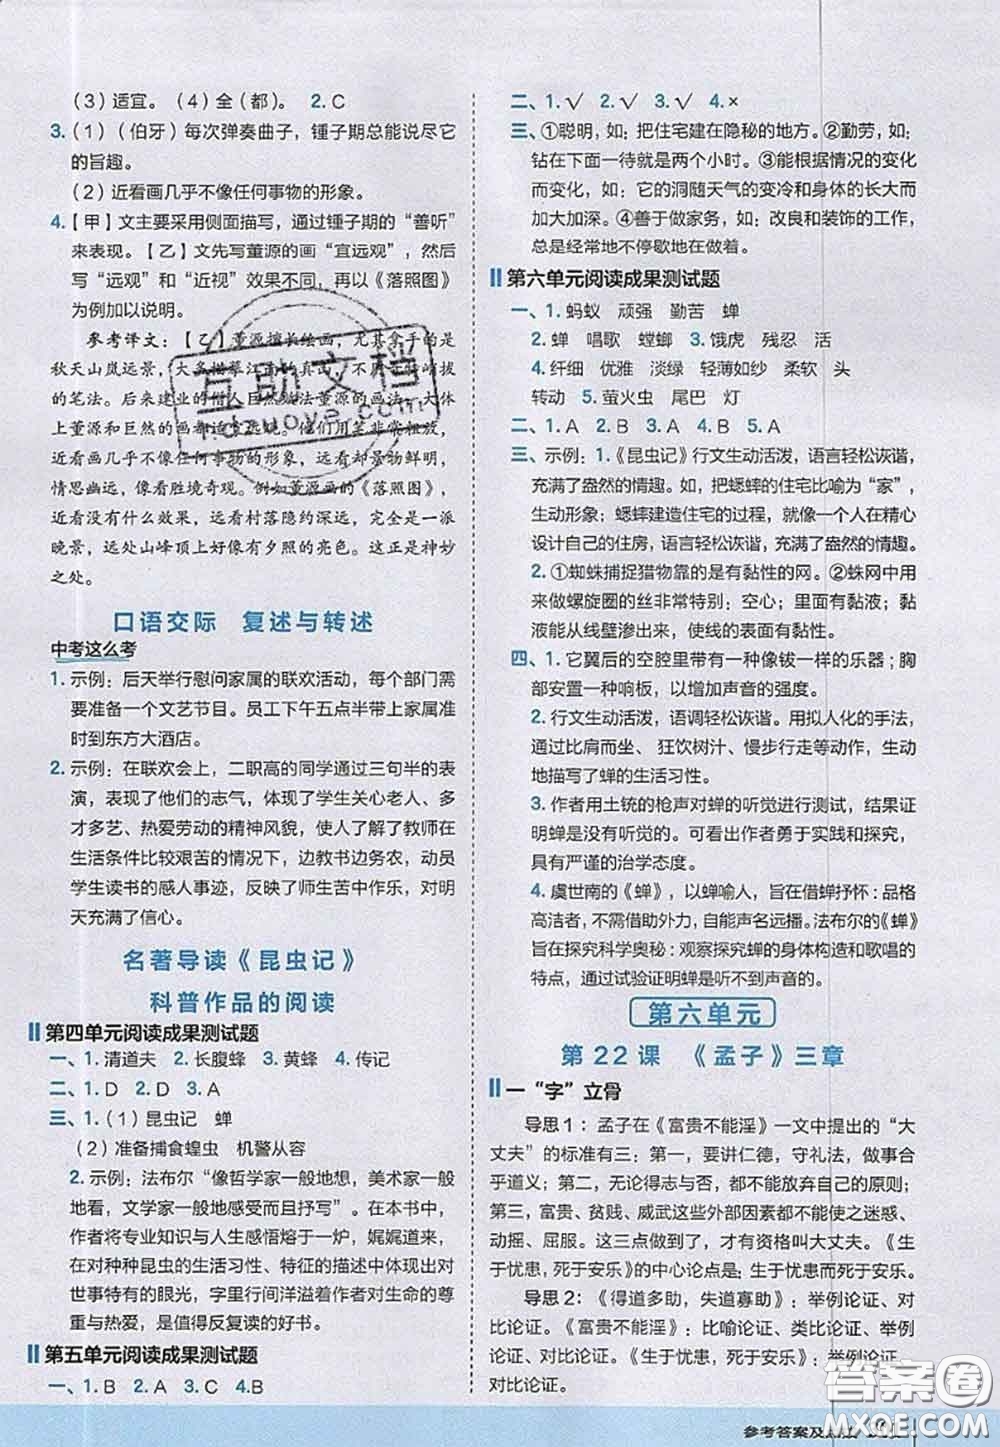 （3）适宜。（4）全（都）。 2. C
3.（1）（伯牙）每次弹奏曲子，锺子期总能说尽它
的旨趣。
（2）近看画几乎不像任何事物的形象。
4.【甲】文主要采用侧面描写，通过锺子期的“善听”
来表现。【乙】文先写董源的画“宜远观”，然后
写“远观”和“近视”效果不同，再以《落照图》
为例加以说明。
参考译文：【乙】董源擅长绘画，尤其拿手的是
秋天山岚远景，大多描摹江南的真山，不屑奇峭
的笔法。后来建业的僧人巨然效法董源的画法，大体
上董源和巨然的画都
近看几乎不像任何事物的形象，远看就景物鲜明，
情思幽远，像看胜境奇观。例如董源画的《落照图》，
近看没有什么效果，远看村落隐约深远，完全是一派
晚景，远处山峰顶上好像有夕照的亮色。这正是神妙
之处。
口语交际 复述与转述
中考这么考
1. 示例：后天举行慰问家属的联欢活动，每个部门
需要准备一个文艺节目。员工下午五点半带上家属准
时到东方大酒店。
2. 示例：在联欢会上，二职高的同学通过三句半的表
演，表现了他们的志气，体现了学生关心老人、多
才多艺、热爱劳动的精神风貌，使人了解了教师在
生活条件比较艰苦的情况下，边教书边务农，动员
学生读书的感人事迹，反映了师生苦中作乐，对明
天充满了信心。
名著导读《昆虫记》
科普作品的阅读
第四单元阅读成果测试题
一、1. 清道夫 2. 长腹蜂 3. 黄蜂 4. 传记
二、1. D 2. D 3. A
三、1.（1）昆虫记 蝉
（2）准备捕食蝗虫 机警从容
2. 示例：法布尔“像哲学家一般地想，美术家一般
地看，文学家一般地感受而且抒写”。在本书中，
作者将专业知识与人生感悟熔于一炉，娓娓道来，
在对种种昆虫的生活习性、特征的描述中体现出对
世事特有的眼光，字里行间洋溢着作者对生命的尊
重与热爱，是值得反复读的好书。
第五单元阅读成果测试题
一、1.B 2.A 3.C 4.B
二、1.√ 2.√ 3.√ 4.×
三、①聪明，如：把住宅建在隐秘的地方。②勤劳，如：
钻在下面一待就是两个小时。③能根据情况的变化
而变化，如：它的洞随天气的变冷和身体的长大而
加大加深。④善于做家务，如：改良和装饰的工作，
总是经常地不停歇地在做着。
第六单元阅读成果测试题
一、1. 蚂蚁 顽强 勤苦 蝉
2. 蝉 唱歌 螳螂 3. 饿虎 残忍 活
4. 纤细 优雅 淡绿 轻薄如纱 柔软 头
转动 5. 萤火虫 尾巴 灯
二、1. A 2. B 3. B 4. B 5. A
三、示例：1.《昆虫记》行文生动活泼，语言轻松诙谐，
充满了盎然的情趣。如，把蟋蟀的住宅比喻为“家”，
生动形象；蟋蟀建造住宅的过程，就像一个人在精心
设计自己的住房，语言轻松诙谐，充满了盎然的情趣。
2. ①蜘蛛捕捉猎物靠的是有黏性的网。②蛛网中用
来做螺旋圈的丝非常特别：空心；里面有黏液；黏
液能从线壁渗出来，使线的表面有黏性。
四、1. 它翼后的空腔里带有一种像钹一样的乐器；胸
部安置一种响板，以增加声音的强度。
2. 行文生动活泼，语调轻松诙谐。用拟人化的手法，
通过比肩而坐、狂饮树汁、慢步行走等动作，生动
地描写了蝉的生活习性。
3. 作者用土铳的枪声对蝉的听觉进行测试，结果证
明蝉是没有听觉的。可看出作者勇于实践和探究，
具有严谨的治学态度。
4. 虞世南的《蝉》，以蝉喻人，旨在借蝉抒怀：品格
高洁者，不需借助外力，自能声名远播。法布尔的《蝉》
旨在探究科学奥秘：观察探究蝉的身体构造和歌唱的
特点，通过试验证明蝉是听不到声音的。
第六单元
第22课 《孟子》三章
一“字”立骨
导思1：孟子在《富贵不能淫》一文中提出的“大
丈夫”的标准有三：第一，要讲仁德，守礼法，做事合
乎道义；第二，无论得志与否，都不能放弃自己的原则；
第三，富贵、贫贱、威武这些外部因素都不能使之迷惑、
动摇、屈服。这三点做到了，才有资格叫大丈夫。《生
于忧患，死于安乐》的中心论点是：生于忧患而死于安乐。
导思2：《得道多助，失道寡助》：举例论证、对
比论证。《富贵不能淫》：比喻论证、类比论证、举例
论证、对比论证。《生于忧患，死于安乐》：举例论证、
对比论证。
互助文档
答案圈
MXQE.COM
参考答案及